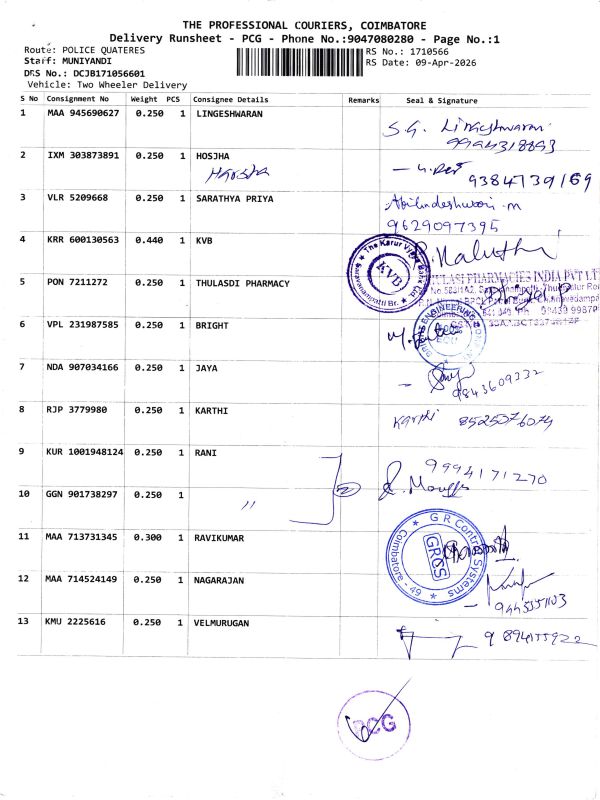 THE PROFESSIONAL COURIERS, COIMBATORE
Delivery Runsheet - PCG - Phone No.:9047080280 - Page No.:1
Route: POLICE QUATERES
RS No.: 1710566
Staff: MUNIYANDI
RS Date: 09-Apr-2026
DRS No.: DCJB171056601
Vehicle: Two Wheeler Delivery
S No Consignment No Weight PCS Consignee Details Remarks Seal & Signature
1 MAA 945690627 0.250 1 LINGESHWARAN
S.G. Lingeshwaran
2 IXM 303873891 0.250 1 HOSJHA
Harsha
9384739169
3 VLR 5209668 0.250 1 SARATHYA PRIYA
9629097395
4 KRR 600130563 0.440 1 KVB
The Karur Vysya Bank Ltd.
KVB
5 PON 7211272 0.250 1 THULASDI PHARMACY
PHARMACIES INDIA PVT LT
6 VPL 231987585 0.250 1 BRIGHT
ENGINEERING
7 NDA 907034166 0.250 1 JAYA
9843609332
8 RJP 3779980 0.250 1 KARTHI
Karthi 8525076074
9 KUR 1001948124 0.250 1 RANI
9994171270
10 GGN 901738297 0.250 1
〃
2
11 MAA 713731345 0.300 1 RAVIKUMAR
G R Control Systems
GRCS
Coimbatore - 49
12 MAA 714524149 0.250 1 NAGARAJAN
13 KMU 2225616 0.250 1 VELMURUGAN
PCG